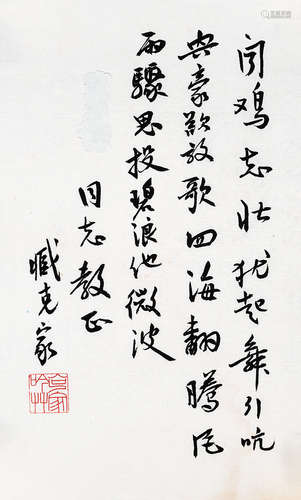 闻鸡志壮犹起舞引吭
兴豪欲放歌四海翻腾风
雨骤思投碧浪化微波
同志教正
臧克家